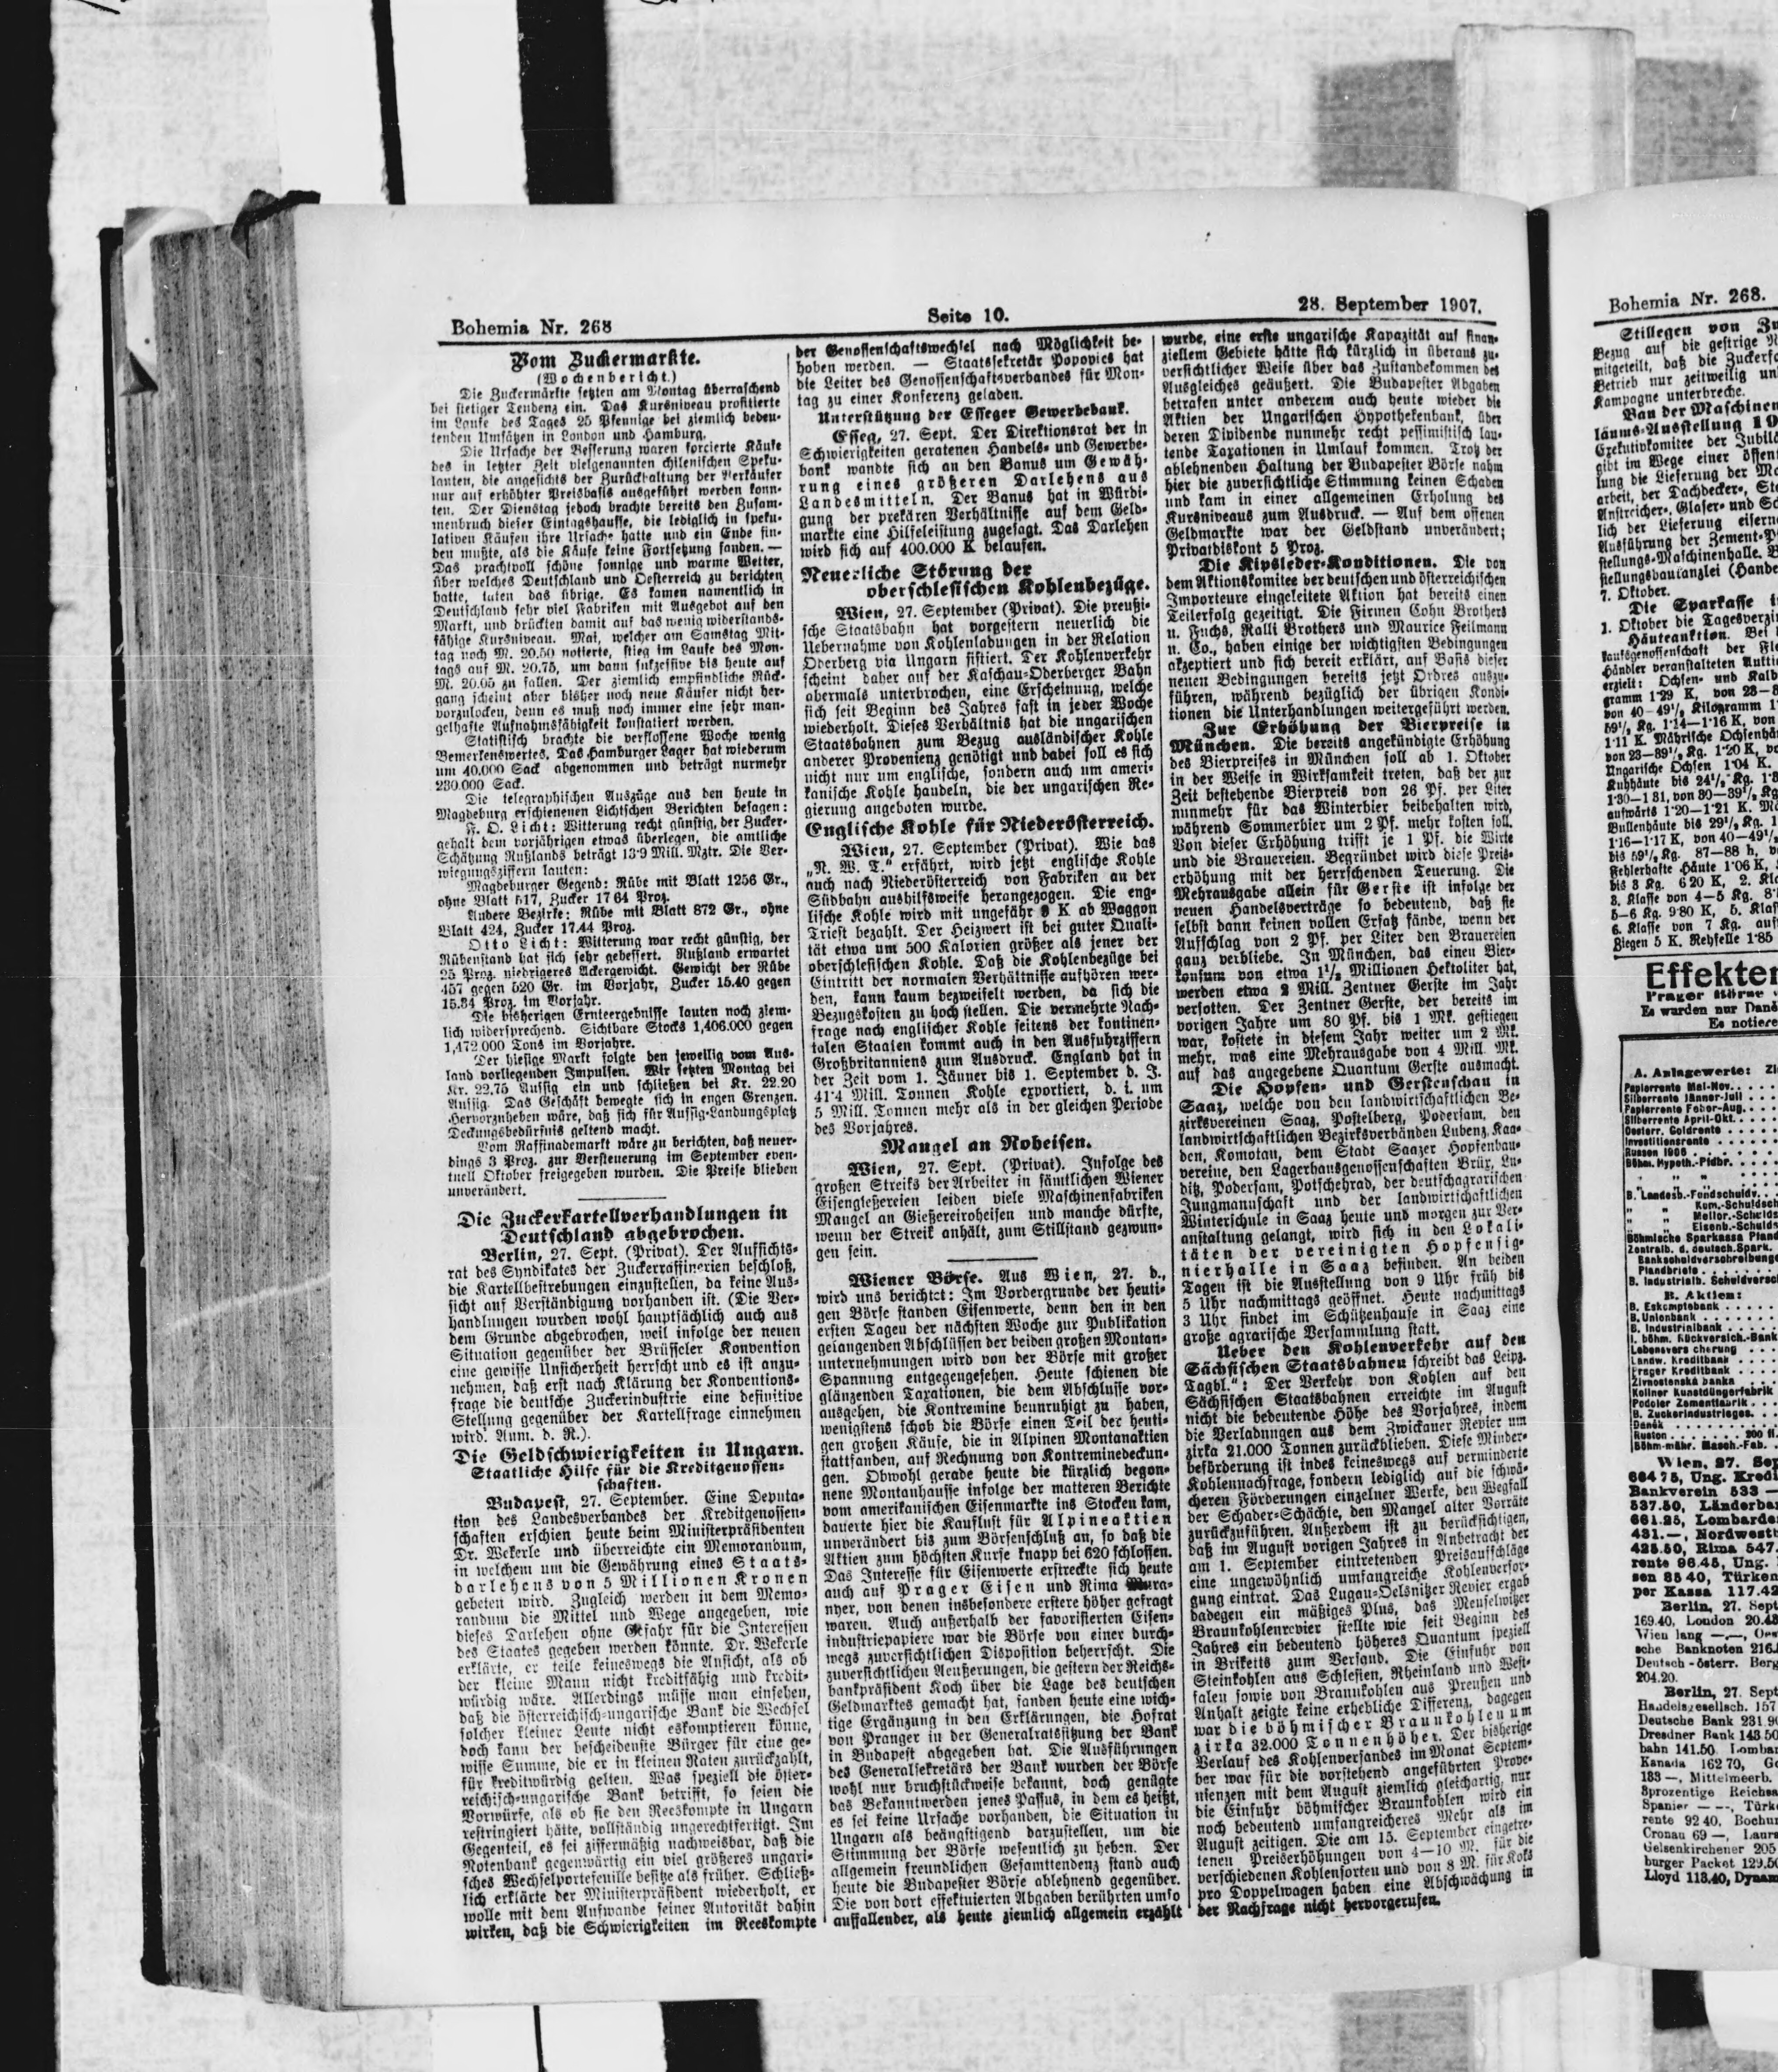 Bohemia Nr. 268
Seite 10.
28. September 1907.
Vom Zuckermarkte.
(Wochenbericht.)
Die Zuckermärkte setzten am Montag überraschend
bei stetiger Tendenz ein. Das Kursniveau profitierte
im Laufe des Tages 25 Pfennige bei ziemlich bedeu-
tenden Umsätzen in London und Hamburg.
Die Ursache der Besserung waren forcierte Käufe
des in letzter Zeit vielgenannten chilenischen Speku-
lanten, die angesichts der Zurückhaltung der Verkäufer
nur auf erhöhter Preisbasis ausgeführt werden konn-
ten. Der Dienstag jedoch brachte bereits den Zusam-
menbruch dieser Eintagshausse, die lediglich in speku-
lativen Käufen ihre Ursache hatte und ein Ende fin-
den mußte, als die Käufe keine Fortsetzung fanden. —
Das prachtvoll schöne sonnige und warme Wetter,
über welches Deutschland und Oesterreich zu berichten
hatte, taten das übrige. Es kamen namentlich in
Deutschland sehr viel Fabriken mit Ausgebot auf den
Markt, und drückten damit auf das wenig widerstands-
fähige Kursniveau. Mai, welcher am Samstag Mit-
tag noch M. 20.50 notierte, stieg im Laufe des Mon-
tags auf M. 20.75, um dann sukzessive bis heute auf
M. 20.05 zu fallen. Der ziemlich empfindliche Rück-
gang scheint aber bisher noch neue Käufer nicht her-
vorzulocken, denn es muß noch immer eine sehr man-
gelhafte Aufnahmsfähigkeit konstatiert werden.
Statistisch brachte die verflossene Woche wenig
Bemerkenswertes. Das Hamburger Lager hat wiederum
um 40.000 Sack abgenommen und beträgt nurmehr
230.000 Sack.
Die telegraphischen Auszüge aus den heute in
Magdeburg erschienenen Lichtschen Berichten besagen:
F. O. Licht: Witterung recht günstig, der Zucker-
gehalt dem vorjährigen etwas überlegen, die amtliche
Schätzung Rußlands beträgt 13·9 Mill. Mztr. Die Ver-
wiegungsziffern lauten:
Magdeburger Gegend: Rübe mit Blatt 1256 Gr.,
ohne Blatt 517, Zucker 17 64 Proz.
Andere Bezirke: Rübe mit Blatt 872 Gr., ohne
Blatt 424, Zucker 17.44 Proz.
Otto Licht: Witterung war recht günstig, der
Rübenstand hat sich sehr gebessert. Rußland erwartet
25 Proz. niedrigeres Ackergewicht. Gewicht der Rübe
457 gegen 520 Gr. im Vorjahr, Zucker 15.40 gegen
15.34 Proz. im Vorjahr.
Die bisherigen Ernteergebnisse lauten noch ziem-
lich widersprechend. Sichtbare Stocks 1,406.000 gegen
1,472 000 Tons im Vorjahre.
Der hiesige Markt folgte den jeweilig vom Aus-
land vorliegenden Impulsen. Wir setzten Montag bei
Kr. 22.75 Aussig ein und schließen bei Kr. 22.20
Aussig. Das Geschäft bewegte sich in engen Grenzen.
Hervorzuheben wäre, daß sich für Aussig-Landungsplatz
Deckungsbedürfnis geltend macht.
Vom Raffinademarkt wäre zu berichten, daß neuer-
dings 3 Proz. zur Versteuerung im September even-
tuell Oktober freigegeben wurden. Die Preise blieben
unverändert.
Die Zuckerkartellverhandlungen in
Deutschland abgebrochen.
Berlin, 27. Sept. (Privat). Der Aufsichts-
rat des Syndikates der Zuckerraffinerien beschloß,
die Kartellbestrebungen einzustellen, da keine Aus-
sicht auf Verständigung vorhanden ist. (Die Ver-
handlungen wurden wohl hauptsächlich auch aus
dem Grunde abgebrochen, weil infolge der neuen
Situation gegenüber der Brüsseler Konvention
eine gewisse Unsicherheit herrscht und es ist anzu-
nehmen, daß erst nach Klärung der Konventions-
frage die deutsche Zuckerindustrie eine definitive
Stellung gegenüber der Kartellfrage einnehmen
wird. Anm. d. R.).
Die Geldschwierigkeiten in Ungarn.
Staatliche Hilfe für die Kreditgenossen-
schaften.
Budapest, 27. September. Eine Deputa-
tion des Landesverbandes der Kreditgenossen-
schaften erschien heute beim Ministerpräsidenten
Dr. Wekerle und überreichte ein Memorandum,
in welchem um die Gewährung eines Staats-
darlehens von 5 Millionen Kronen
gebeten wird. Zugleich werden in dem Memo-
randum die Mittel und Wege angegeben, wie
dieses Darlehen ohne Gefahr für die Interessen
des Staates gegeben werden könnte. Dr. Wekerle
erklärte, er teile keineswegs die Ansicht, als ob
der kleine Mann nicht kreditfähig und kredit-
würdig wäre. Allerdings müsse man einsehen,
daß die österreichisch-ungarische Bank die Wechsel
solcher kleiner Leute nicht eskomptieren könne,
doch kann der bescheidenste Bürger für eine ge-
wisse Summe, die er in kleinen Raten zurückzahlt,
für kreditwürdig gelten. Was speziell die öster-
reichisch-ungarische Bank betrifft, so seien die
Vorwürfe, als ob sie den Reeskompte in Ungarn
restringiert hätte, vollständig ungerechtfertigt. Im
Gegenteil, es sei ziffermäßig nachweisbar, daß die
Notenbank gegenwärtig ein viel größeres ungari-
sches Wechselportefeuille besitze als früher. Schließ-
lich erklärte der Ministerpräsident wiederholt, er
wolle mit dem Aufwande seiner Autorität dahin
wirken, daß die Schwierigkeiten im Reeskompte
der Genossenschaftswechsel nach Möglichkeit be-
hoben werden. — Staatssekretär Popovics hat
die Leiter des Genossenschaftsverbandes für Mon-
tag zu einer Konferenz geladen.
Unterstützung der Esseger Gewerbebank.
Esseg, 27. Sept. Der Direktionsrat der in
Schwierigkeiten geratenen Handels- und Gewerbe-
bank wandte sich an den Banus um Gewäh-
rung eines größeren Darlehens aus
Landesmitteln. Der Banus hat in Würdi-
gung der prekären Verhältnisse auf dem Geld-
markte eine Hilfeleistung zugesagt. Das Darlehen
wird sich auf 400.000 K belaufen.
Neuerliche Störung der
oberschlesischen Kohlenbezüge.
Wien, 27. September (Privat). Die preußi-
sche Staatsbahn hat vorgestern neuerlich die
Uebernahme von Kohlenladungen in der Relation
Oderberg via Ungarn sistiert. Der Kohlenverkehr
scheint daher auf der Kaschau-Oderberger Bahn
abermals unterbrochen, eine Erscheinung, welche
sich seit Beginn des Jahres fast in jeder Woche
wiederholt. Dieses Verhältnis hat die ungarischen
Staatsbahnen zum Bezug ausländischer Kohle
anderer Provenienz genötigt und dabei soll es sich
nicht nur um englische, sondern auch um ameri-
kanische Kohle handeln, die der ungarischen Re-
gierung angeboten wurde.
Englische Kohle für Niederösterreich.
Wien, 27. September (Privat). Wie das
„N. W. T." erfährt, wird jetzt englische Kohle
auch nach Niederösterreich von Fabriken an der
Südbahn aushilfsweise herangezogen. Die eng-
lische Kohle wird mit ungefähr K ab Waggon
Triest bezahlt. Der Heizwert ist bei guter Quali-
tät etwa um 500 Kalorien größer als jener der
oberschlesischen Kohle. Daß die Kohlenbezüge bei
Eintritt der normalen Verhältnisse aufhören wer-
den, kann kaum bezweifelt werden, da sich die
Bezugskosten zu hoch stellen. Die vermehrte Nach-
frage nach englischer Kohle seitens der kontinen-
talen Staaten kommt auch in den Ausfuhrziffern
Großbritanniens zum Ausdruck. England hat in
der Zeit vom 1. Jänner bis 1. September d. J.
41·4 Mill. Tonnen Kohle exportiert, d. i. um
5 Mill. Tonnen mehr als in der gleichen Periode
des Vorjahres.
Mangel an Roheisen.
Wien, 27. Sept. (Privat). Infolge des
großen Streiks der Arbeiter in sämtlichen Wiener
Eisengießereien leiden viele Maschinenfabriken
Mangel an Gießereiroheisen und manche dürfte,
wenn der Streik anhält, zum Stillstand gezwun-
gen sein.
Wiener Börse. Aus Wien, 27. d.,
wird uns berichtet: Im Vordergrunde der heuti-
gen Börse standen Eisenwerte, denn den in den
ersten Tagen der nächsten Woche zur Publikation
gelangenden Abschlüssen der beiden großen Montan-
unternehmungen wird von der Börse mit großer
Spannung entgegengesehen. Heute schienen die
glänzenden Taxationen, die dem Abschlusse vor-
ausgehen, die Kontremine beunruhigt zu haben,
wenigstens schob die Börse einen Teil der heuti-
gen großen Käufe, die in Alpinen Montanaktien
stattfanden, auf Rechnung von Kontreminedeckun-
gen. Obwohl gerade heute die kürzlich begon-
nene Montanhausse infolge der matteren Berichte
vom amerikanischen Eisenmarkte ins Stocken kam,
dauerte hier die Kauflust für Alpineaktien
unverändert bis zum Börsenschluß an, so daß die
Aktien zum höchsten Kurse knapp bei 620 schlossen.
Das Interesse für Eisenwerte erstreckte sich heute
auch auf Prager Eisen und Rima Mura-
nyer, von denen insbesondere erstere höher gefragt
waren. Auch außerhalb der favorisierten Eisen-
industriepapiere war die Börse von einer durch-
wegs zuversichtlichen Disposition beherrscht. Die
zuversichtlichen Aeußerungen, die gestern der Reichs-
bankpräsident Koch über die Lage des deutschen
Geldmarktes gemacht hat, fanden heute eine wich-
tige Ergänzung in den Erklärungen, die Hofrat
von Pranger in der Generalratssitzung der Bank
in Budapest abgegeben hat. Die Ausführungen
des Generalsekretärs der Bank wurden der Börse
wohl nur bruchstückweise bekannt, doch genügte
das Bekanntwerden jenes Passus, in dem es heißt,
es sei keine Ursache vorhanden, die Situation in
Ungarn als beängstigend darzustellen, um die
Stimmung der Börse wesentlich zu heben. Der
allgemein freundlichen Gesamttendenz stand auch
heute die Budapester Börse ablehnend gegenüber.
Die von dort effektuierten Abgaben berührten umso
auffallender, als heute ziemlich allgemein erzählt
wurde, eine erste ungarische Kapazität auf finan-
ziellem Gebiete hätte sich kürzlich in überaus zu-
versichtlicher Weise über das Zustandekommen des
Ausgleiches geäußert. Die Budapester Abgaben
betrafen unter anderem auch heute wieder die
Aktien der Ungarischen Hypothekenbank, über
deren Dividende nunmehr recht pessimistisch lau-
tende Taxationen in Umlauf kommen. Trotz der
ablehnenden Haltung der Budapester Börse nahm
hier die zuversichtliche Stimmung keinen Schaden
und kam in einer allgemeinen Erholung des
Kursniveaus zum Ausdruck. — Auf dem offenen
Geldmarkte war der Geldstand unverändert;
Privatdiskont 5 Proz.
Die Kipsleder-Konditionen. Die von
dem Aktionskomitee der deutschen und österreichischen
Importeure eingeleitete Aktion hat bereits einen
Teilerfolg gezeitigt. Die Firmen Cohn Brothers
u. Fuchs, Ralli Brothers und Maurice Feilmann
u. Co., haben einige der wichtigsten Bedingungen
akzeptiert und sich bereit erklärt, auf Basis dieser
neuen Bedingungen bereits jetzt Ordres auszu-
führen, während bezüglich der übrigen Kondi-
tionen die Unterhandlungen weitergeführt werden.
Zur Erhöhung der Bierpreise in
München. Die bereits angekündigte Erhöhung
des Bierpreises in München soll ab 1. Oktober
in der Weise in Wirksamkeit treten, daß der zur
Zeit bestehende Bierpreis von 26 Pf. per Liter
nunmehr für das Winterbier beibehalten wird,
während Sommerbier um 2 Pf. mehr kosten soll.
Von dieser Erhöhung trifft je 1 Pf. die Wirte
und die Brauereien. Begründet wird diese Preis-
erhöhung mit der herrschenden Teuerung. Die
Mehrausgabe allein für Gerste ist infolge der
neuen Handelsverträge so bedeutend, daß sie
selbst dann keinen vollen Ersatz fände, wenn der
Aufschlag von 2 Pf. per Liter den Brauereien
ganz verbliebe. In München, das einen Bier-
konsum von etwa 1½ Millionen Hektoliter hat,
werden etwa 2 Mill. Zentner Gerste im Jahr
versotten. Der Zentner Gerste, der bereits im
vorigen Jahre um 80 Pf. bis 1 Mk. gestiegen
war, kostete in diesem Jahr weiter um 2 Mk.
mehr, was eine Mehrausgabe von 4 Mill. Mk.
auf das angegebene Quantum Gerste ausmacht.
Die Hopfen- und Gerstenschau in
Saaz, welche von den landwirtschaftlichen Be-
zirksvereinen Saaz, Postelberg, Podersam, den
landwirtschaftlichen Bezirksverbänden Lubenz, Kaa-
den, Komotau, dem Stadt Saazer Hopfenbau-
vereine, den Lagerhausgenossenschaften Brüx, Lu-
ditz, Podersam, Potschehrad, der deutschagrarischen
Jungmannschaft und der landwirtschaftlichen
Winterschule in Saaz heute und morgen zur Ver-
anstaltung gelangt, wird sich in den Lokali-
täten der vereinigten Hopfensig-
nierhalle in Saaz befinden. An beiden
Tagen ist die Ausstellung von 9 Uhr früh bis
5 Uhr nachmittags geöffnet. Heute nachmittags
3 Uhr findet im Schützenhause in Saaz eine
große agrarische Versammlung statt.
Ueber den Kohlenverkehr auf den
Sächsischen Staatsbahnen schreibt das Leipz.
Tagbl.": Der Verkehr von Kohlen auf den
Sächsischen Staatsbahnen erreichte im August
nicht die bedeutende Höhe des Vorjahres, indem
die Verladungen aus dem Zwickauer Revier um
zirka 21.000 Tonnen zurückblieben. Diese Minder-
beförderung ist indes keineswegs auf verminderte
Kohlennachfrage, sondern lediglich auf die schwä-
cheren Förderungen einzelner Werke, den Wegfall
der Schader-Schächte, den Mangel alter Vorräte
zurückzuführen. Außerdem ist zu berücksichtigen,
daß im August vorigen Jahres in Anbetracht der
am 1. September eintretenden Preisaufschläge
eine ungewöhnlich umfangreiche Kohlenversor-
gung eintrat. Das Lugau-Oelsnitzer Revier ergab
dagegen ein mäßiges Plus, das Meuselwitzer
Braunkohlenrevier stellte wie seit Beginn des
Jahres ein bedeutend höheres Quantum speziell
in Briketts zum Versand. Die Einfuhr von
Steinkohlen aus Schlesien, Rheinland und West-
falen sowie von Braunkohlen aus Preußen und
Anhalt zeigte keine erhebliche Differenz, dagegen
war die böhmischer Braunkohlen um
zirka 32.000 Tonnen höher. Der bisherige
Verlauf des Kohlenversandes im Monat Septem-
ber war für die vorstehend angeführten Prove-
nienzen mit dem August ziemlich gleichartig, nur
die Einfuhr böhmischer Braunkohlen wird ein
noch bedeutend umfangreicheres Mehr als im
August zeitigen. Die am 15. September eingetre-
tenen Preiserhöhungen von 4—10 M. für die
verschiedenen Kohlensorten und von 8 M. für Koks
pro Doppelwagen haben eine Abschwächung in
der Nachfrage nicht hervorgerufen.
Bohemia Nr. 268.
Stillegen von
Bezug auf die gestrige
mitgeteilt, daß die
Betrieb nur zeitweilig
Kampagne unterbreche.
Bau der Maschinen
läums-Ausstellung
Exekutivkomitee der
gibt im Wege einer
lung die Lieferung der
arbeit, der Dachdecker-,
Anstreicher-, Glaser- und
lich der Lieferung
Ausführung der
stellungs-Maschinenhalle.
stellungsbaukanzlei
7. Oktober.
Die Sparkasse
1. Oktober die
Häuteauktion. Bei
kaufsgenossenschaft der
Händler veranstalteten
erzielt: Ochsen- und
gramm 1·29 K, von
von 40-49½ Kilogramm
59½ Kg. 1·14—1·16 K, von
1·11 K. Mährische
von 23—39½ Kg. 1·20 K,
Ungarische Ochsen 1·04 K.
Kuhhäute bis 24½ Kg.
1·30—1 31, von 30—39½
aufwärts 1·20—1·21 K.
Bullenhäute bis 29½ Kg.
1·16—1·17 K, von 40—49½
bis 59½ Kg. 87—88 h,
Fehlerhafte Häute 1·06 K,
bis 3 Kg. 6 20 K, 2.
3. Klasse von 4—5 Kg.
5—6 Kg. 9·80 K, 5.
6. Klasse von 7 Kg.
Ziegen 5 K. Rehfelle 1·85
Prager Börse
Es wurden nur
Es notiere
A. Anlagewerte:
Papierrente Mai-Nov.
Silberrente Jänner-Juli
Papierrente Feber-Aug.
Silberrente April-Okt.
Oesterr. Goldrente
Investitionsrente
Russen 1906
Böhm. Hypoth.-Pfdbr.
B. Landesb.-Fondschuldv.
" " Kom.-Schuldsch
" " Melior.-Schulds
" " Eisenb.-Schulds
Böhmische Sparkassa
Zentralb. d. deutsch. Spark.
Bankschuldverschreibung
Pfandbriefe
B. Industrialb.
B. Aktien:
B. Eskomptebank
B. Unionbank
B. Industrialbank
I. böhm. Rückversich.-Bank
Landw. Kreditbank
Prager Kreditbank
Živnostenská banka
Koliner Kunstdüngerfabrik
Podoler Zementfabrik
B. Zuckerindustrieges.
Daněk
Ruston 200 fl.
Böhm-mähr. Masch.-Fab.
Wien, 27.
664 75, Ung.
Bankverein 533 —
537.50,
661.25,
431.—,
425.50, Rima 547.
rente 96.45, Ung.
sen 85 40, Türken
per Kassa 117.42
Berlin, 27. Sept
169.40, London 20.48
Wien lang —.—,
sche Banknoten 216.
Deutsch-österr. Berg
204.20.
Berlin, 27. Sept
Handelsgesellsch. 157
Deutsche Bank 231.90
Dresdner Bank 143 50
bahn 141.50,
Kanada 162 70,
183 —, Mittelmeerb.
3prozentige Reichsa
Spanier — —,
rente 92 40,
Cronau 69 —,
Gelsenkirchener 205
burger Packet 129.50
Lloyd 113.40,